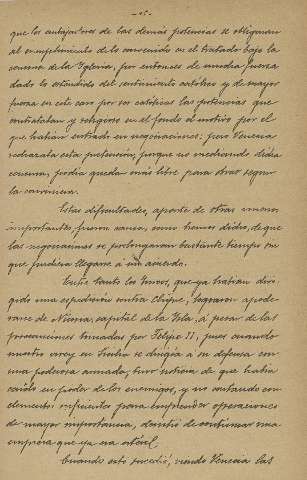 —15—
que los embajadores de las demás potencias se obligaran
al cumplimiento de lo convenido en el tratado bajo la
censura de la Iglesia, por entonces de mucha fuerza
dado lo extendido del sentimiento católico y de mayor
fuerza en este caso por ser católicas las potencias que
contrataban y religioso en el fondo el motivo por el
que habían entrado en negociaciones; pero Venecia
rechazaba esta pretensión, porque no mediando dicha
censura, podría quedar más libre para obrar según
la conveniencia.
Estas dificultades, aparte de otras menos
importantes fueron causa, como hemos dicho, de que
las negociaciones se prolongaran bastante tiempo sin
que pudiera llegarse á un acuerdo.
Entre tanto los turcos, que ya habían diri-
gido una expedición contra Chipre, lograron apode-
rarse de Nicosia, capital de la Isla, á pesar de las
prevenciones tomadas por Felipe II, pues cuando
nuestro virrey en Sicilia se dirigía á su defensa con
una poderosa armada, tuvo noticia de que había
caído en poder de los enemigos, y no contando con
elementos suficientes para emprender operaciones
de mayor importancia, desistió de continuar una
empresa que ya era estéril.
Cuando esto sucedió, viendo Venecia las